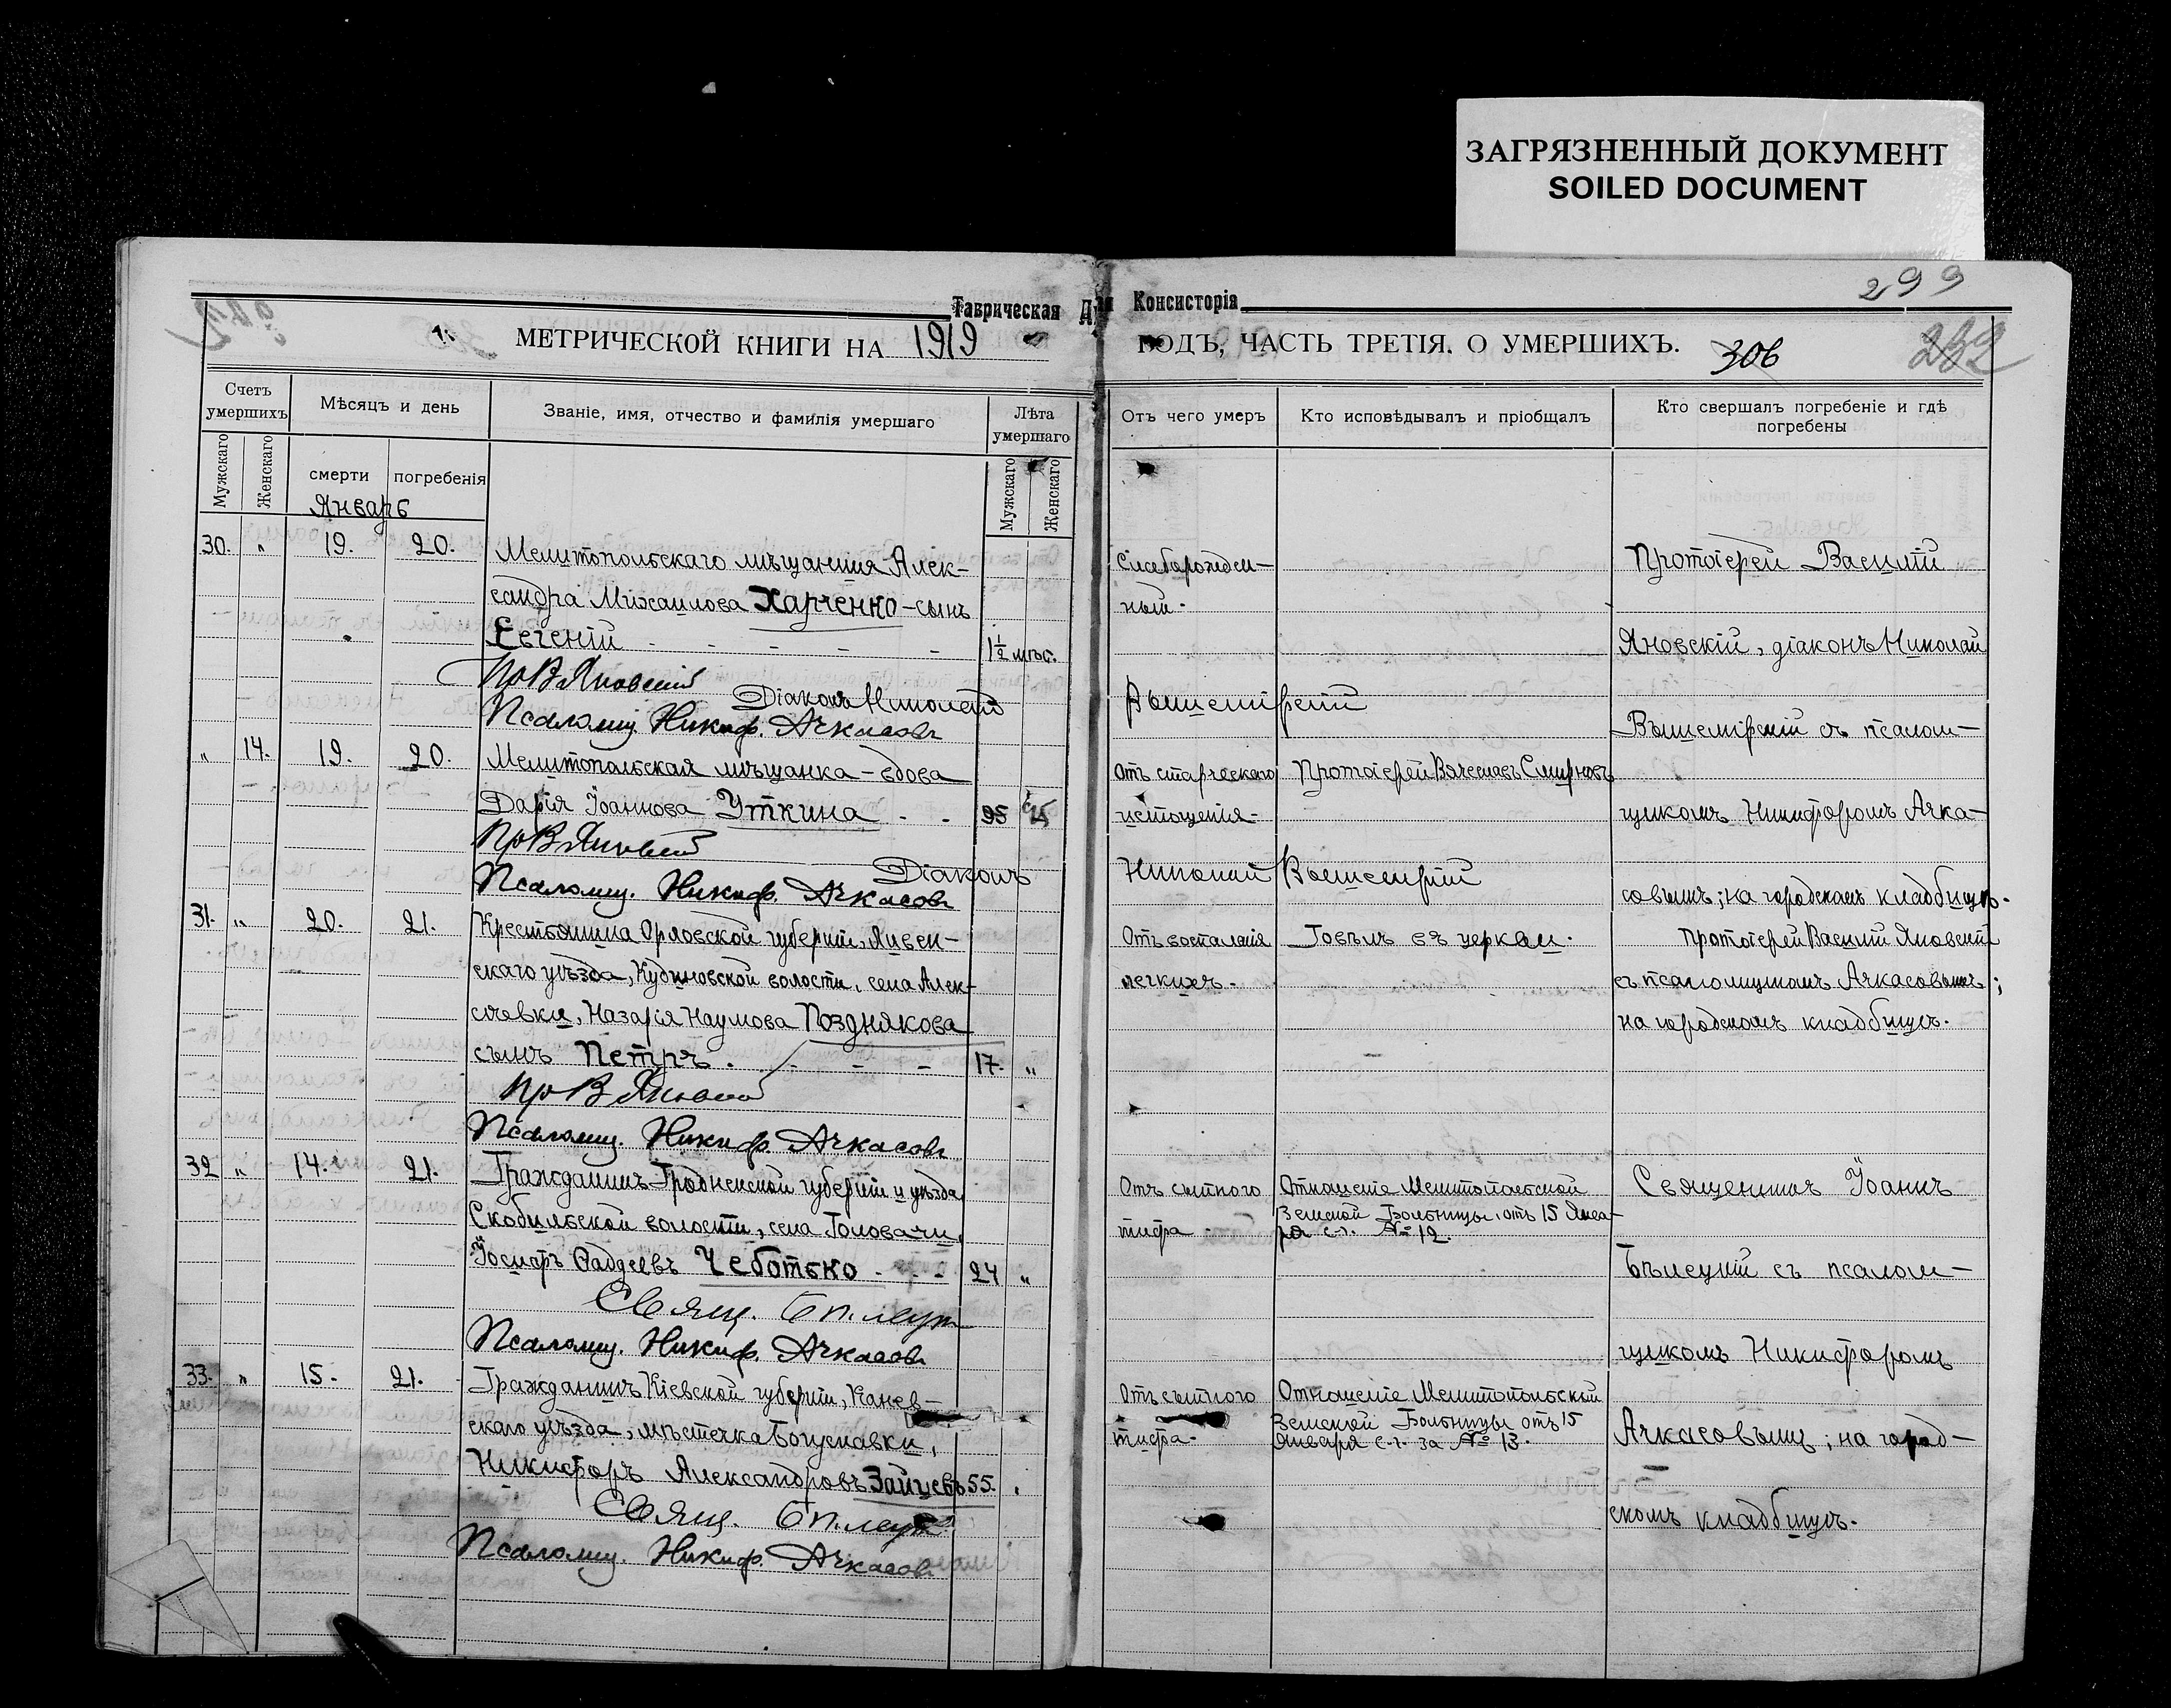 ЗАГРЯЗНЕННЫЙ ДОКУМЕНТ
SOILED DOCUMENT
299
Таврическая Консисторія
МЕТРИЧЕСКОЙ КНИГИ НА 1919 ГОДЪ, ЧАСТЬ ТРЕТІЯ. О УМЕРШИХЪ.
306
232
Счетъ умершихъ
Мѣсяцъ и день
Званіе, имя, отчество и фамилія умершаго
Лѣта умершаго
Отъ чего умеръ
Кто исповѣдывалъ и пріобщалъ
Кто свершалъ погребеніе и гдѣ погребены
Мужскаго
Женскаго
смерти
погребенія
Мужскаго
Женскаго
Январь
30. " 19. 20.
Мелитопольскаго мѣщанина Алек-
сандра Михаилова Харченко - сынъ
Евгеній - - - - - 1½ мѣс.
Слаборожден-
ный.
Пр В Яновскій
Діаконъ Николай Вышемірскій
Псаломщ. Никиф. Ачкасовъ
" 14. 19. 20.
Мелитопольская мѣщанка - вдова
Дарія Іоаннова Уткина - - 95
Отъ старческаго
истощенія.
Протоіерей Вячеславъ Смирновъ
Пр В Яновскій
Діаконъ Николай Вышемірскій
Псаломщ. Никиф. Ачкасовъ
Протоіерей Василій
Яновскій, діаконъ Николай
Вышемірскій съ псалом-
щикомъ Никифоромъ Ачка-
совымъ; на городскомъ кладбищѣ.
31. " 20. 21.
Крестьянина Орловской губерніи, Ливен-
скаго уѣзда, Кудиновской волости, села Алек-
сѣевки, Назарія Наумова Позднякова
сынъ Петръ. - - - 17. "
Отъ воспаленія
легкихъ.
Говѣлъ въ церкви.
Протоіерей Василій Яновскій
съ псаломщикомъ Ачкасовымъ;
на городскомъ кладбищѣ.
Пр В Яновскій
Псаломщ. Никиф. Ачкасовъ
32 " 14. 21.
Гражданинъ Гродненской губерніи и уѣзда
Скобильской волости, села Головачи,
Іосифъ Фаддеевъ Чеботько - - - 24 "
Отъ сыпного
тифа.
Отношеніе Мелитопольской
Земской Больницы, отъ 15 Янва-
ря с.г. № 12.
Свящ. Бѣлецкій
Псаломщ. Никиф. Ачкасовъ
33. " 15. 21.
Гражданинъ Кіевской губерніи, Канев-
скаго уѣзда, мѣстечка Богуславки,
Никифоръ Александровъ Зайцевъ 55.
Отъ сыпного
тифа.
Отношеніе Мелитопольской
Земской Больницы отъ 15
Января с.г. за № 13.
Свящ. Бѣлецкій
Псаломщ. Никиф. Ачкасовъ
Священникъ Іоаннъ
Бѣлецкій съ псалом-
щикомъ Никифоромъ
Ачкасовымъ; на город-
скомъ кладбищѣ.